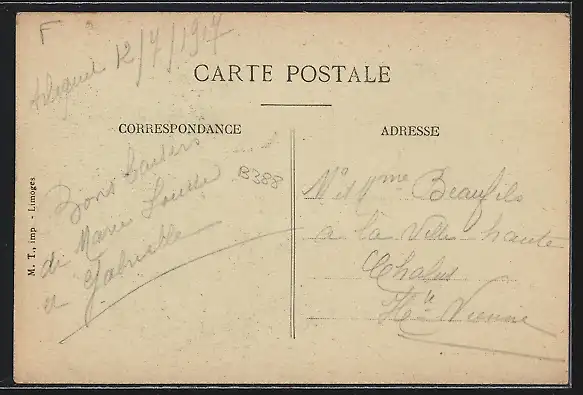 F
12/7/1917
CARTE POSTALE
CORRESPONDANCE
ADRESSE
Bons baisers
de Marie Louise
et Gabrielle
B388
Mr et Mme Beaufils
a la Ville haute
Chalus
Hte Vienne
M. T., imp. - Limoges